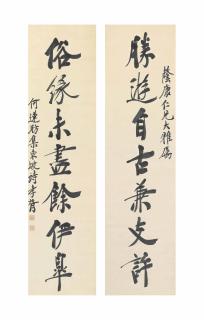 勝遊自古兼支許
蔭仁兄大雅屬
俗緣未盡餘伊皋
何蓮舫集東坡詩孝胥